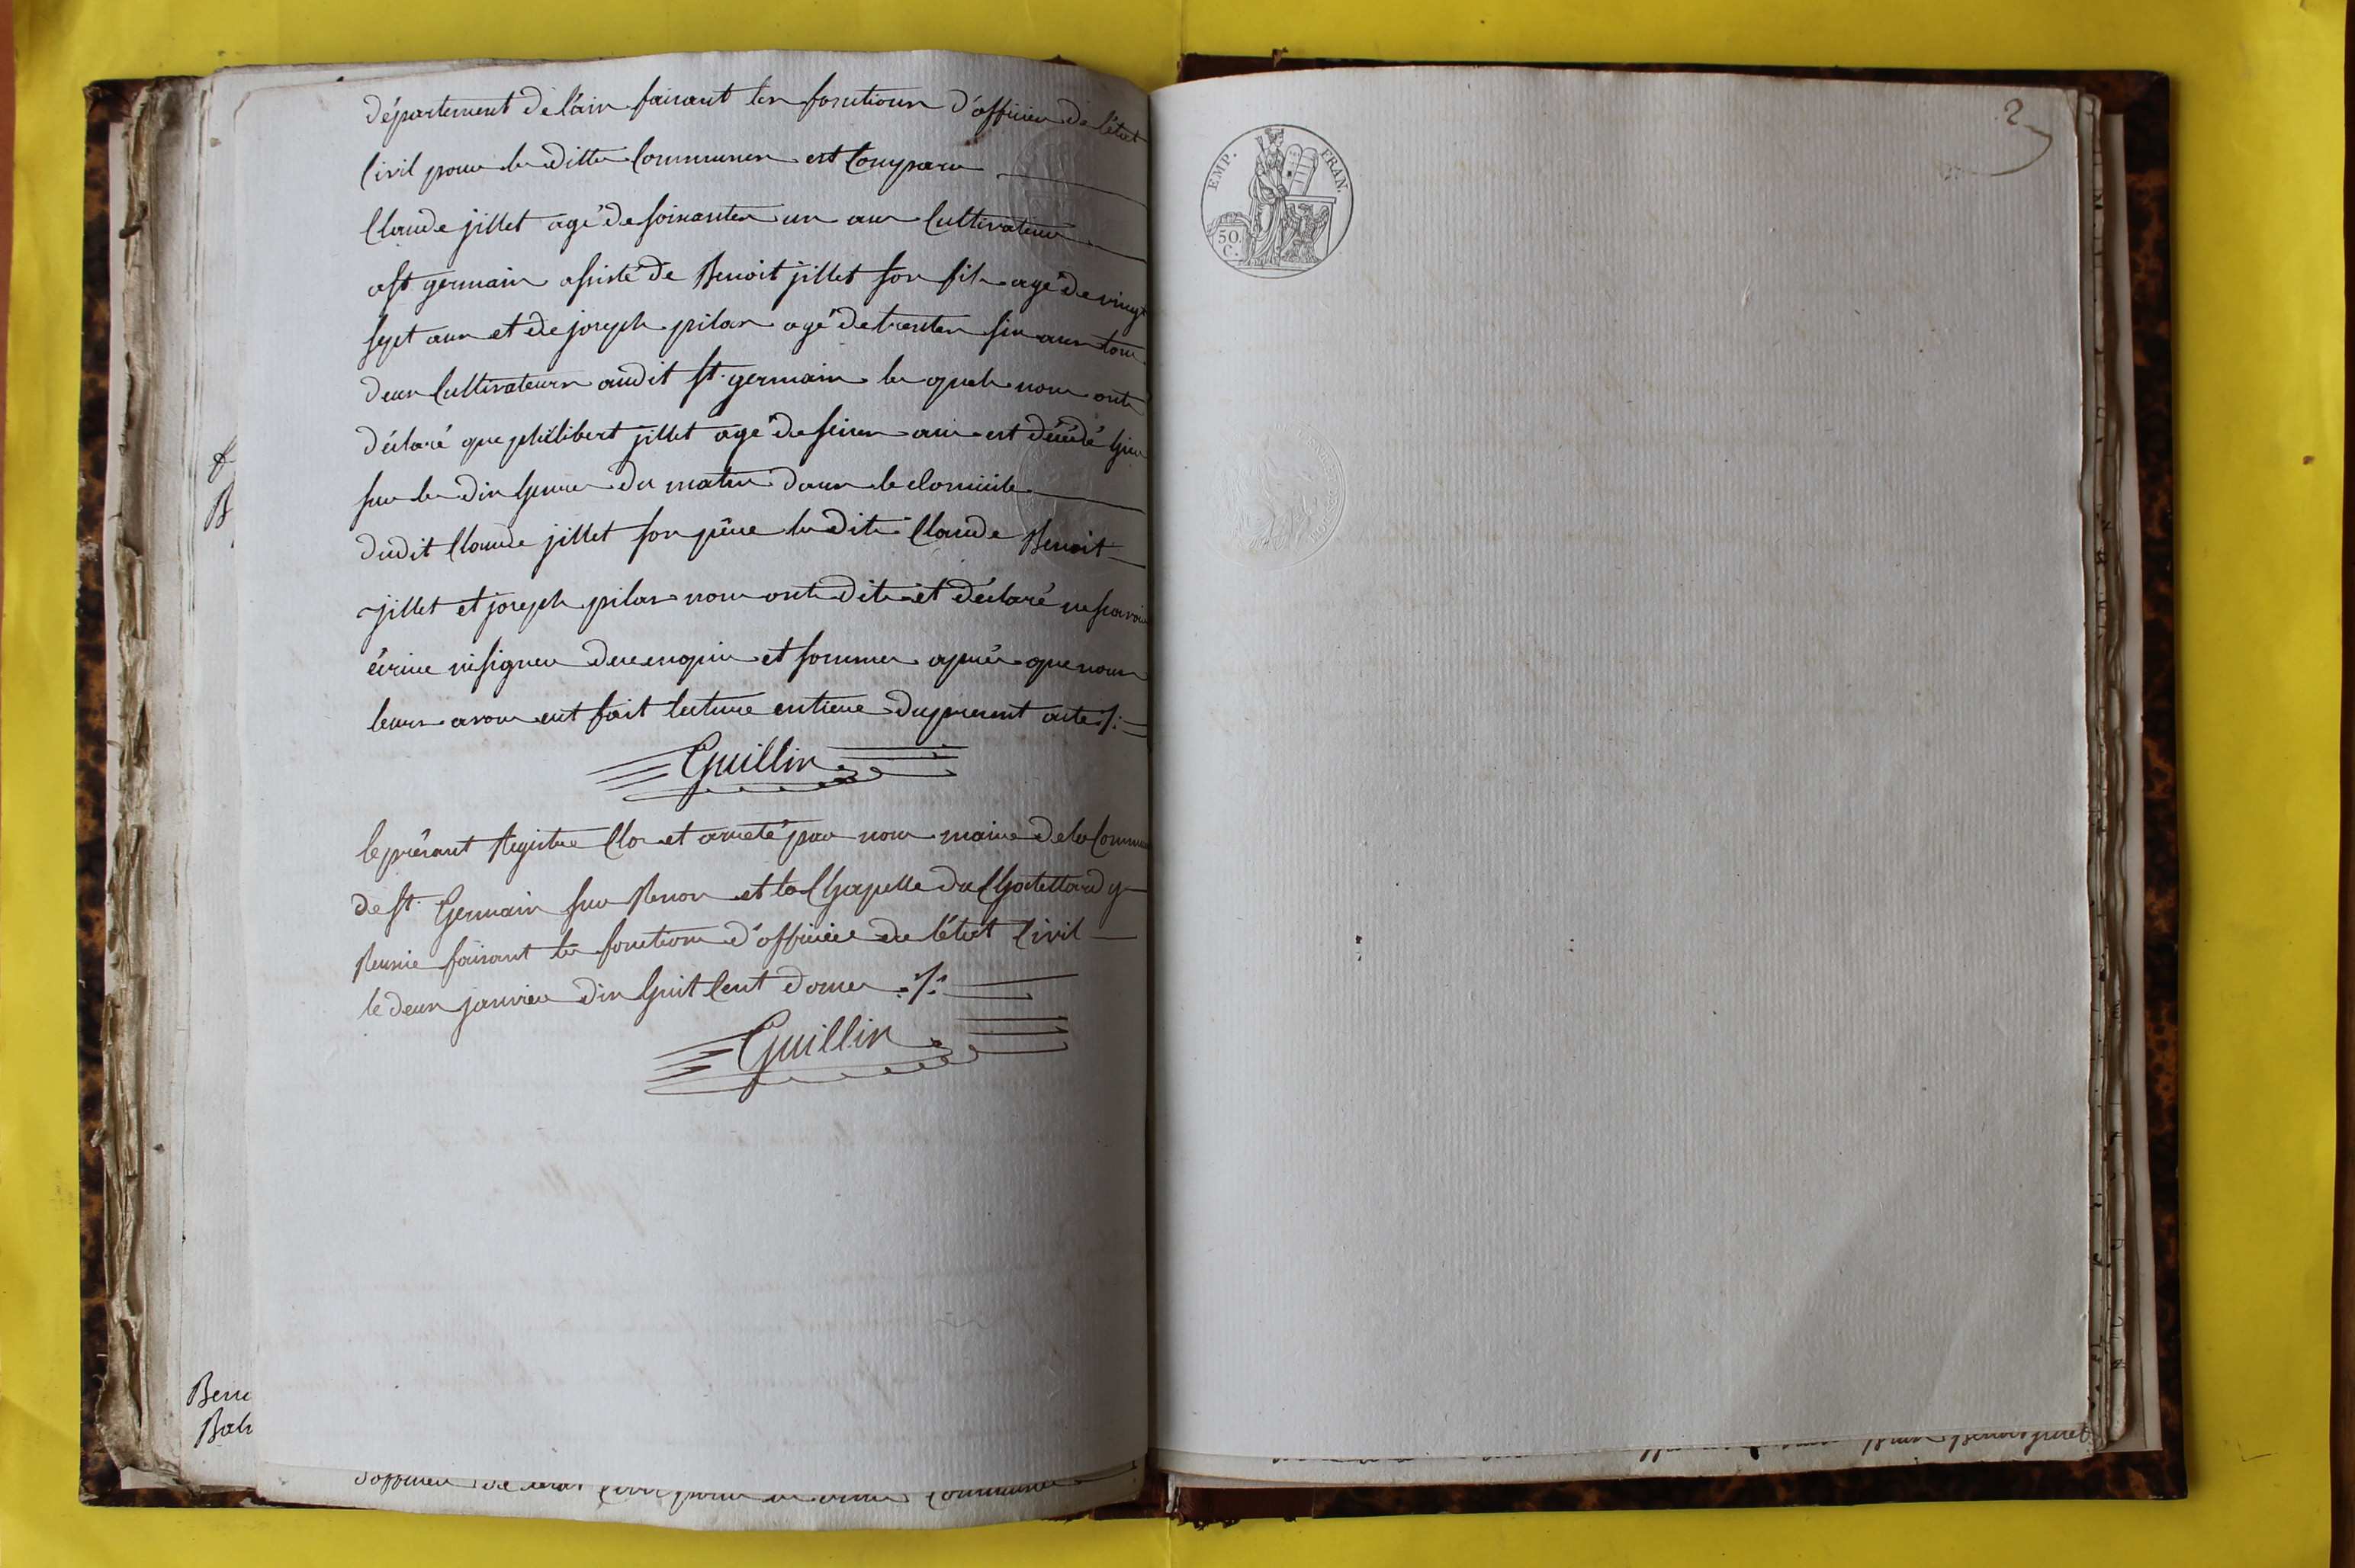 département de l'ain faisant les fonctions d'officier de l'état
Civil pour les dittes Communes est Comparu
Claude jillet agé de soixantes un ans Cultivateur
a st germain assisté de Benoit jillet son fils agé de vingt
sept ans et de joseph pilas agé de trentes six ans tous
deux Cultivateurs audit st. germain les quels nous ont
déclaré que philibert jillet agé de seizes ans est décédé hier
sur les dix heures du matin dans le domicile
dudit Claude jillet son père les dits Claude Benoit
jillet et joseph pilas nous ont dits et déclaré ne scavoir
écrire ni signer de ce enquis et sommes après que nous
leurs avons eut fait lecture entiere du present acte ./.
Guillin
le présant Registre Clos et arreté par nous maire de la Commune
de st. Germain sur Renon et la Chapelle du Chatellard y
Reunie faisant les fonctions d'officier de l'état Civil
le deux janvier dix huit Cent douzes ./.
Guillin
B
Bene
d'officier de l'état Civil pour les dittes Communes
2
EMP. FRAN.
50.
C.